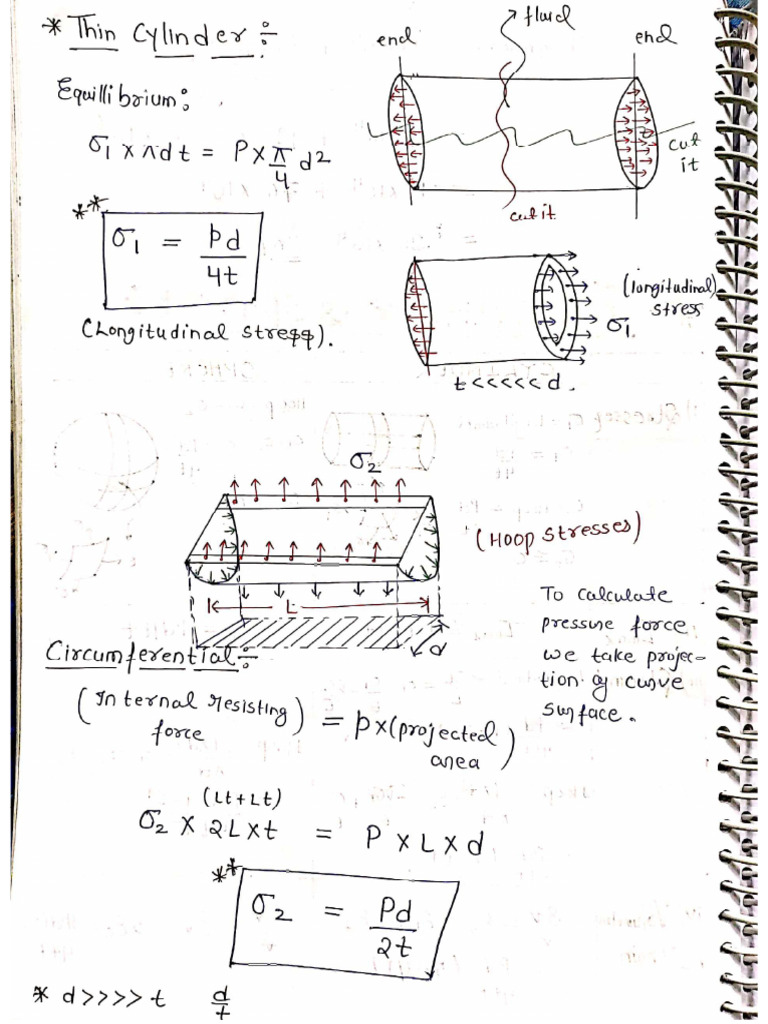 * Thin Cylinder ÷
fluid
end
end
Equillibrium:
σ1 x πdt = P x π/4 d2
cut
it
cut it
** σ1 = pd/4t
(Longitudinal stress).
(longitudinal)
stress
σ1.
t<<<<<d.
σ2
(Hoop stresses)
L
d
To calculate
pressure force
we take projec-
tion of curve
surface.
Circumferential ÷
(Internal resisting
force) = p x (projected
area)
(Lt+Lt)
σ2 x 2L x t = P x L x d
** σ2 = Pd/2t
* d>>>>t d/t